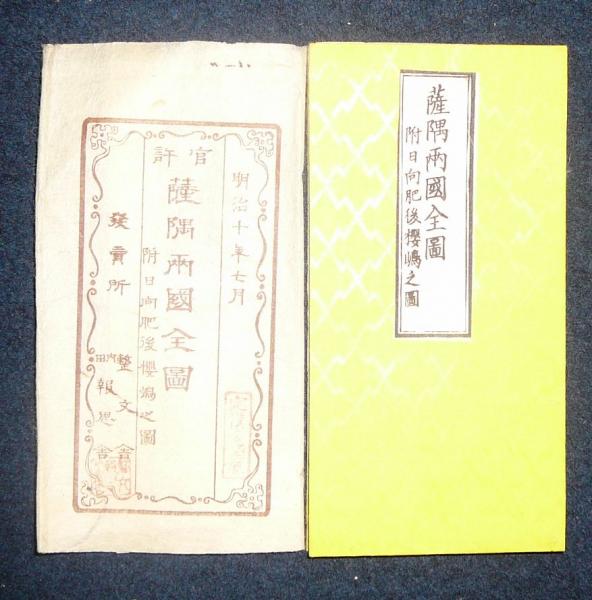 薩隅兩國全圖
附日向肥後櫻嶋之圖
官許
明治十年七月
薩隅兩國全圖
附日向肥後櫻嶋之圖
發賣所
整文舎
内田
報思舎